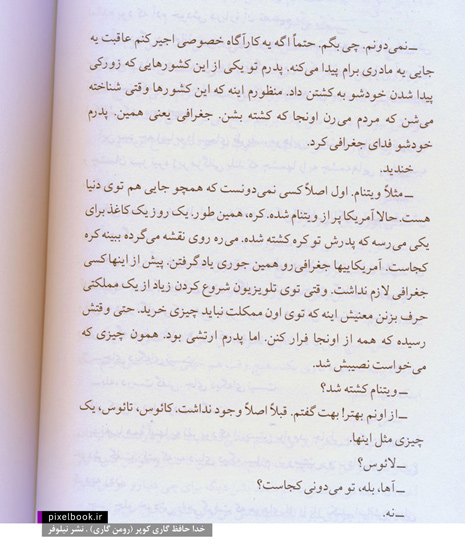 ــ نمی‌دونم. چی بگم. حتماً اگه یه کارآگاه خصوصی اجیر کنم عاقبت یه
جایی یه مادری برام پیدا می‌کنه. پدرم تو یکی از این کشورهایی که زورکی
پیدا شدن خودشو به کشتن داد. منظورم اینه که این کشورها وقتی شناخته
می‌شن که مردم می‌رن اونجا که کشته بشن. جغرافی یعنی همین. پدرم
خودشو فدای جغرافی کرد.
خندید.
ــ مثلاً ویتنام. اول اصلاً کسی نمی‌دونست که همچو جایی هم توی دنیا
هست. حالا آمریکا پر از ویتنام شده. کره، همین طور. یک روز یک کاغذ برای
یکی می‌رسه که پدرش تو کره کشته شده. می‌ره روی نقشه می‌گرده ببینه کره
کجاست. آمریکاییها جغرافی رو همین جوری یاد گرفتن. پیش از اینها کسی
جغرافی لازم نداشت. وقتی توی تلویزیون شروع کردن زیاد از یک مملکتی
حرف بزنن معنیش اینه که توی اون ممکلت نباید چیزی خرید. حتی وقتش
رسیده که همه از اونجا فرار کنن. اما پدرم ارتشی بود. همون چیزی که
می‌خواست نصیبش شد.
ــ ویتنام کشته شد؟
ــ از اونم بهتر! بهت گفتم. قبلاً اصلاً وجود نداشت. کائوس، تائوس، یک
چیزی مثل اینها.
ــ لائوس؟
ــ آها، بله، تو می‌دونی کجاست؟
ــ نه.
pixelbook.ir
خدا حافظ گاری کوپر (رومن گاری) . نشر نیلوفر